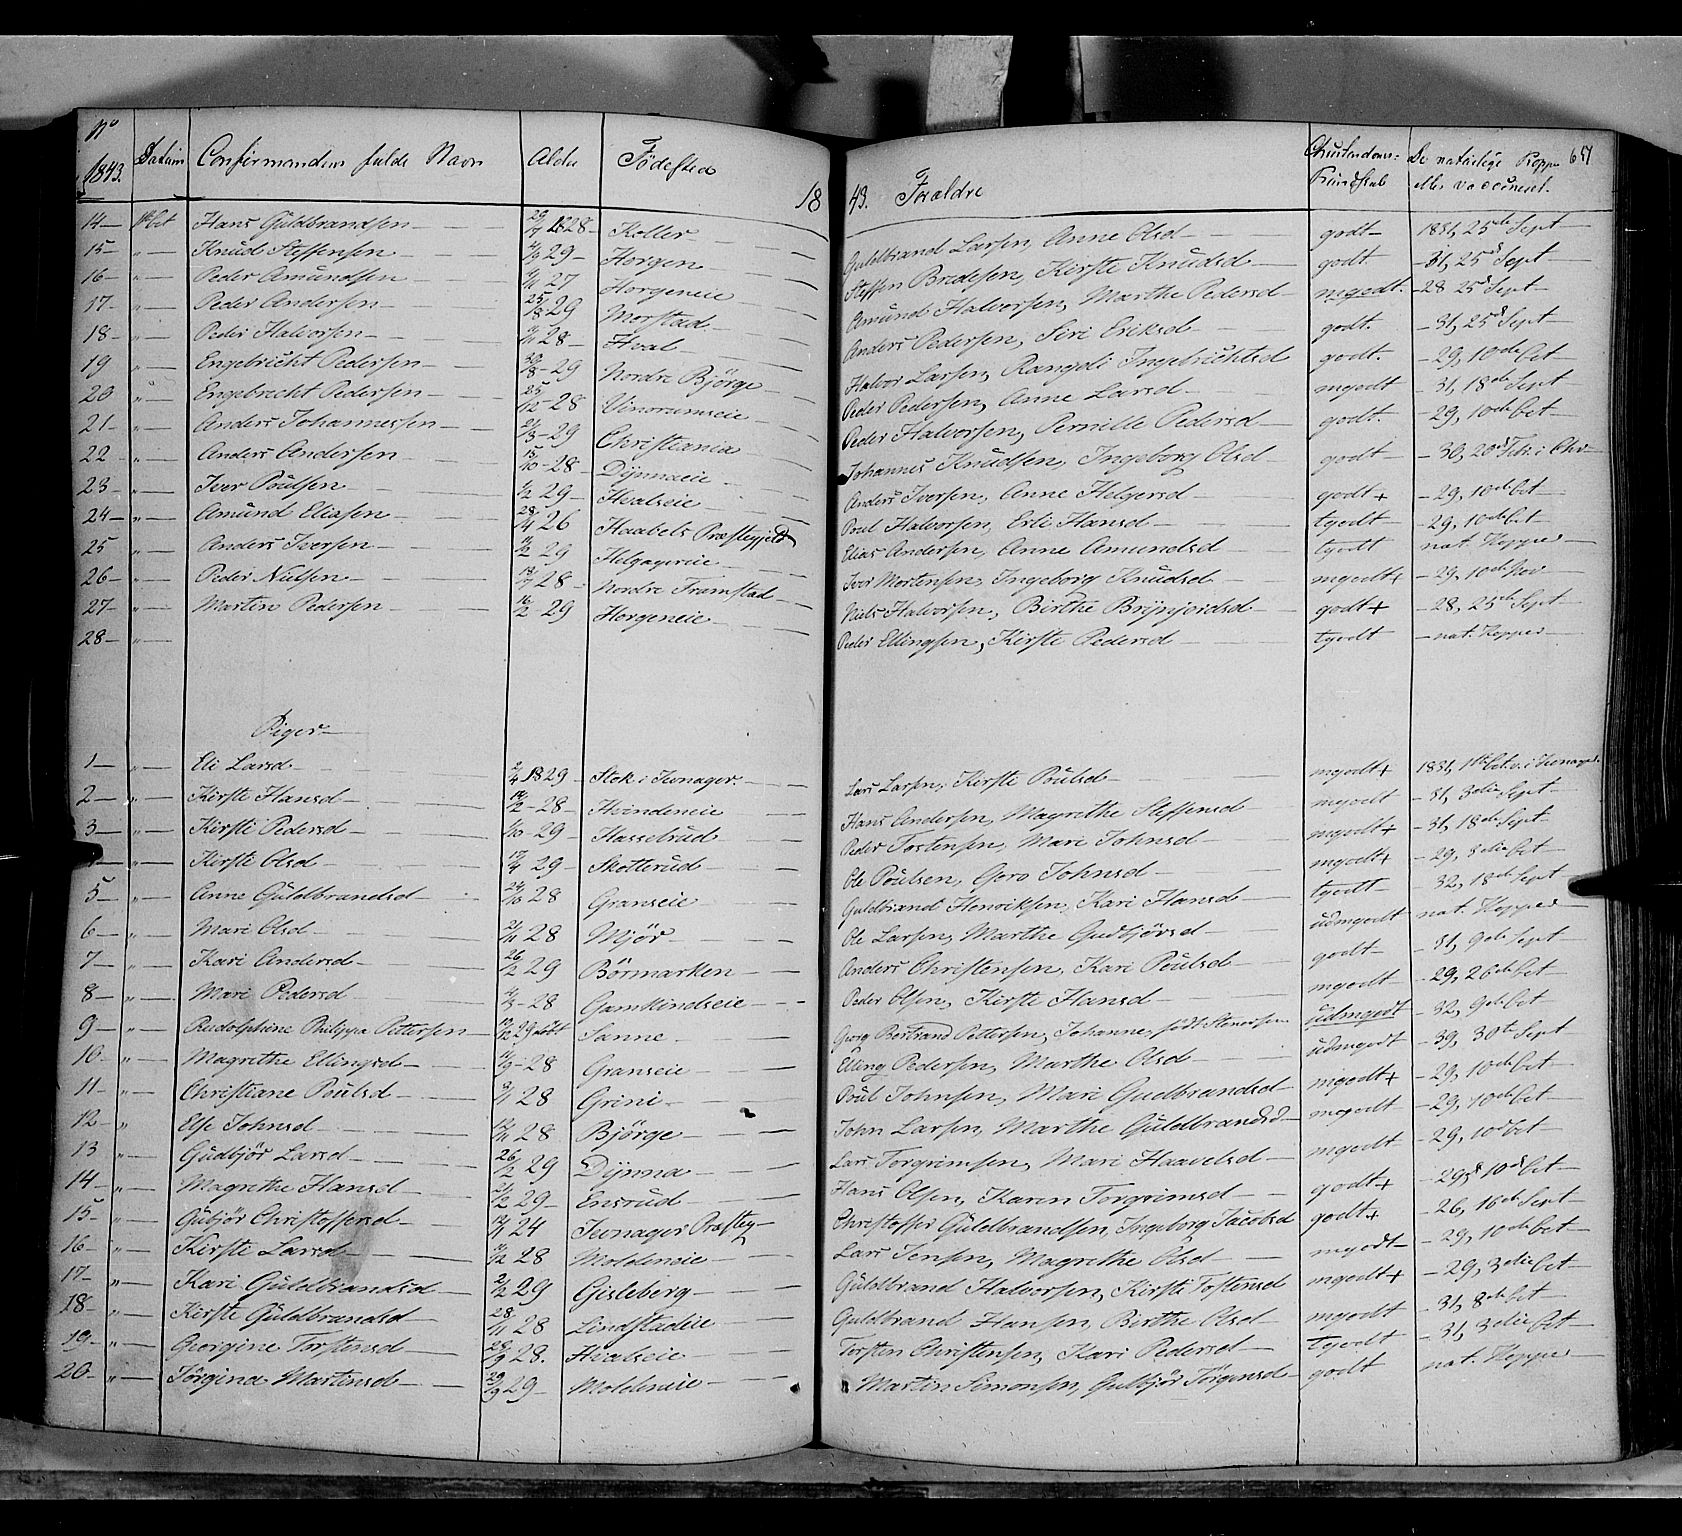 No 1843. Datum Confirmandens fulde Navn Alder Födested 18 43. Forældre Christendoms: Kundskab De naturlige Kopper eller vaccineret. 651
14 1ste Oct Hans Guldbrandsen 29/7 1828 Koller Guldbrand Larsen, Anne Olsd godt 1831, 25de Sept
15 " Knud Steffensen 29 Horgen Steffen Bredesen, Kirsti Knudsd godt 31, 25d Sept
16 " Peder Amundsen 27 Horgeneie Amund Halvorsen, Marthe Pedersd mgodt 28 25d Sept
17 " Peder Andersen 25/8 29 Morstad Anders Pedersen, Siri Eriksd godt 31, 25d Sept
18 " Peder Halvorsen 28 Hval Halvor Larsen, Rangdi Ingebrichtsd godt 29, 10de Oct
19 " Engebricht Pedersen 30/8 29 Nordre Björge Peder Pedersen, Anne Larsd mgodt 31, 18de Sept
20 " Engebrecht Pedersen 25/12 28 Vinorumseie Peder Halvorsen, Pernille Pedersd godt 29, 10de Oct
21 " Anders Johannessen 21/3 29 Christiania Johannes Knudsen, Ingeborg Olsd godt 30, 20d Febr. i Chr
22 " Anders Andersen 15/10 28 Dÿnnaeie Anders Iversen, Anne Helgersd godt+ 29, 10de Oct
23 " Iver Poulsen 1/2 29 Hvalseie Poul Halvorsen, Erli Hansd tgodt 29, 10de Oct
24 " Amund Eliasen 28/4 26 Haabels Præstegjeld Elias Andersen, Anne Amundsd tgodt nat. Kopper
25 " Anders Iversen 11/2 29 Helgagereie Iver Mortensen, Ingeborg Knudsd mgodt+ 29, 10de Nov
26 " Peder Nielsen 18/7 28 Nordre Framstad Niels Halvorsen, Birthe Brÿnjerdsd godt+ 28, 25de Sept
27 " Martin Pedersen 16/2 29 Horgeneie Peder Ellingsen, Kirsti Pedersd tgodt nat. Kopper
28 "
Piger
1 " Eli Larsd 2/4 1829 Stok i Jevnager Lars Larsen, Kirsti Poulsd mgodt+ 1831, 1ste Oct. i Jevnager
2 " Kirsti Hansd 28 Hvindeneie Hans Andersen, Magrethe Steffensd mgodt 31, 3die Sept
3 " Kirsti Pedersd 1/10 29 Hasselrud Peder Tostensen, Mari Johnsd mgodt+ 31, 18de Sept
4 " Kirsti Olsd 17/4 29 Skotterud Ole Poulsen, Goro Johnsd mgodt+ 29, 8die Oct
5 " Anne Guldbrandsd 24/10 28 Granseie Guldbrand Henriksen, Kari Hansd tgodt 32, 18de Sept
6 " Mari Olsd 21/11 28 Mjör Ole Larsen, Marthe Gudbjörsd udmgodt nat. Kopper
7 " Kari Andersd 26/2 29 Börmarken Anders Christensen, Kari Poulsd godt 31, 9de Sept
8 " Mari Pedersd 28 Gamkindseie Peder Olsen, Kirsti Hansd mgodt 29, 26de Oct
9 " Rudolphine Philippa Pettersen 29 döbt Sanne Georg Bertrand Pettersen, Johanne födt Stenersen udmgodt 32, 9de Oct
10 " Magrethe Ellingsd 28 Granseie Elling Pedersen, Marthe Olsd udmgodt 39, 30te Sept
11 " Christiane Poulsd 28 Grini Poul Johnsen, Mari Gudbrandsd mgodt+ 29, 10de Oct
12 " Else Johnsd 28 Björge John Larsen, Marthe Guldbrandsd mgodt 29, 10de Oct
13 " Gudbjör Larsd 26/2 29 Dÿnna Lars Torgrimsen, Mari Haavelsd mgodt 29, 10d Oct
14 " Magrethe Hansd 21/2 29 Ensrud Hans Olsen, Karen Torgrimsd godt+ 29, 10d Oct
15 " Gubjör Christoffersd 24 Jevnager Præsteg Christoffer Guldbrandsen, Ingeborg Jacobsd godt+ 26, 16de Sept
16 " Kirsti Larsd 28 Moldeneie Lars Jensen, Magrethe Olsd mgodt 29, 10de Oct
17 " Kari Guldbrandsd 2/2 29 Gisleberg Guldbrand Halvorsen, Kirsti Tostensd mgodt+ 29, 3die Oct
18 " Kirsti Guldbrandsd 28/11 28 Lindstadeie Guldbrand Hansen, Berthe Olsd mgodt 31, 8de Oct
19 " Georgine Torstensd 28. Hvalseie Torsten Christensen, Kari Pedersd tgodt 31, 3die Oct
20 " Jörgina Martinsd 29/9 29 Moldeneie Martin Simonsen, Gulbjör Jörgensd godt nat. Kopper